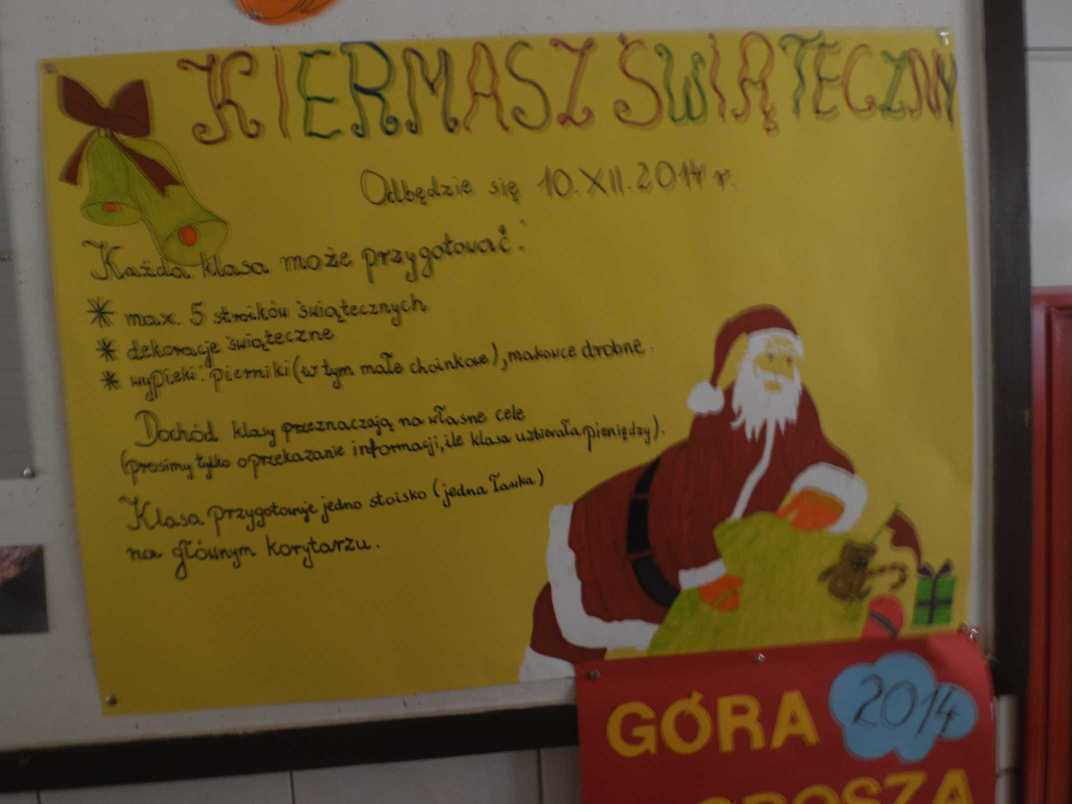 KIERMASZ ŚWIĄTECZNY
Odbędzie się 10.XII.2014 r.
Każda klasa może przygotować:
* max. 5 stroików świątecznych
* dekoracje świąteczne
* wypieki: pierniki (w tym małe choinkowe), makowce drobne.
Dochód klasy przeznaczają na własne cele
(prosimy tylko o przekazanie informacji, ile klasa uzbierała pieniędzy).
Klasa przygotowuje jedno stoisko (jedna ławka)
na głównym korytarzu.
GÓRA 2014
GROSZA